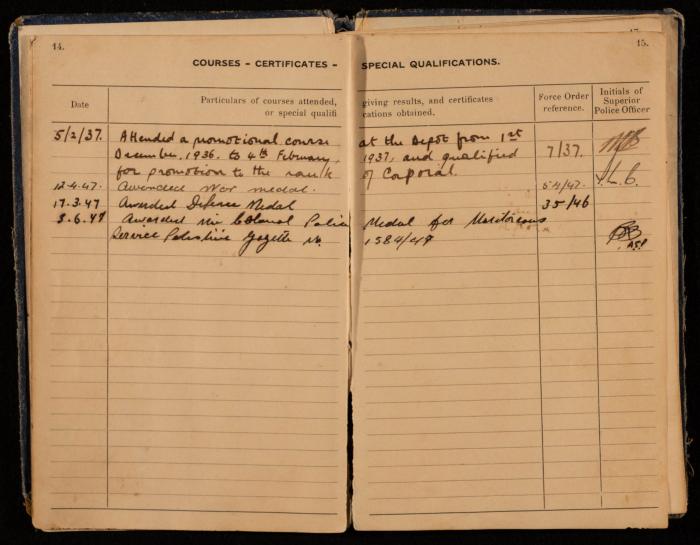 14.
15.
COURSES – CERTIFICATES – SPECIAL QUALIFICATIONS.
Date
Particulars of courses attended, giving results, and certificates
or special qualifi cations obtained.
Force Order
reference.
Initials of
Superior
Police Officer
5/2/37. Attended a promotional course at the Depot from 1st
December, 1936. to 4th February, 1937, and qualified 7/37.
for promotion to the rank of Corporal.
12.4.47. Awarded War medal. 54/47.
17.3.47 Awarded Defence Medal 35/46
3.6.47 Awarded the Colonial Police Medal for Meritorious
Service Palestine Gazette No. 1584/47
ASP